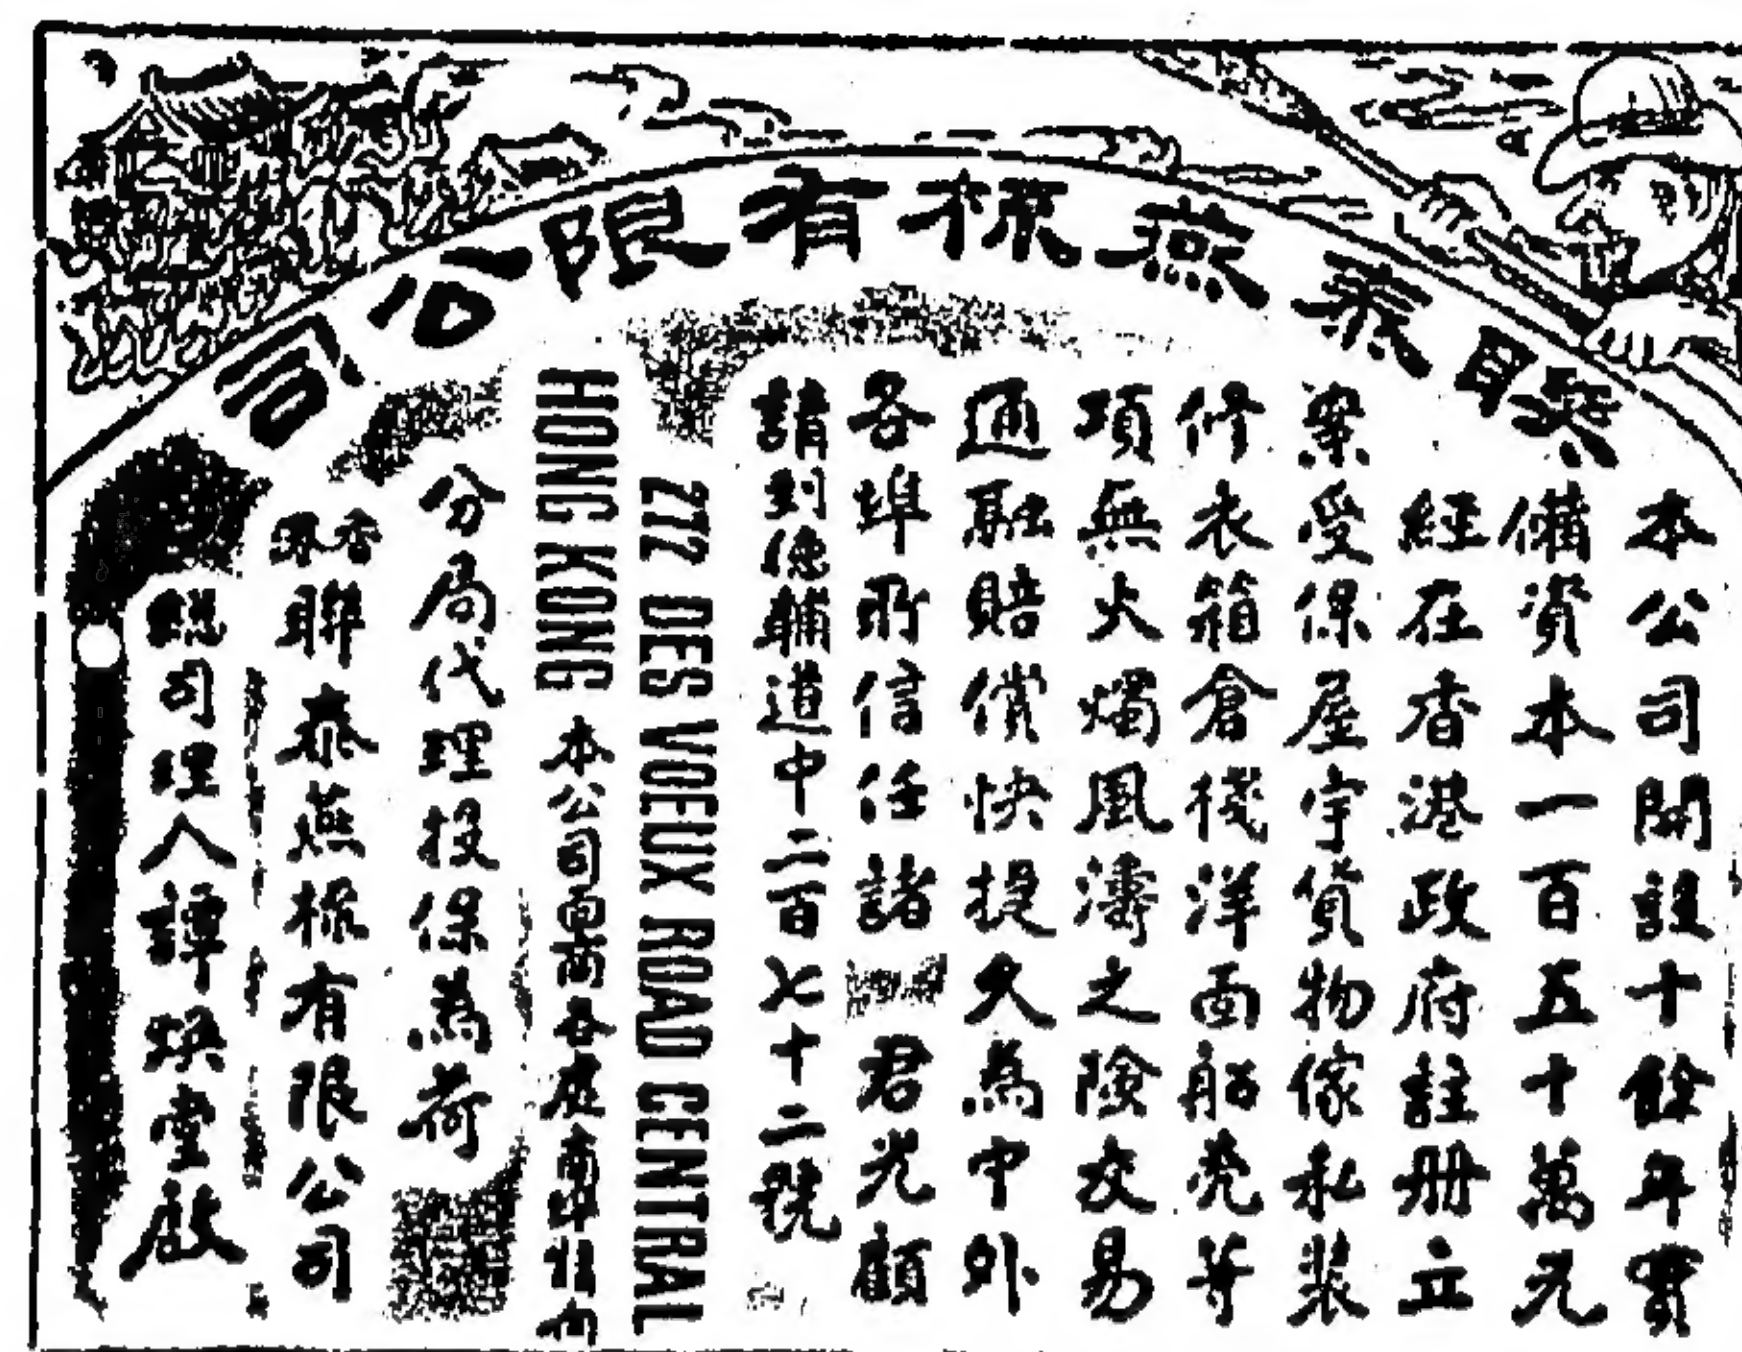 聯泰燕梳有限公司
本公司開設十餘年實
備資本一百五十萬元
經在香港政府註册立
案受保屋宇貨物傢私裝
修衣箱倉棧洋面船壳等
項無火燭風濤之險交易
通融賠償快捷久為中外
各埠所信任諸君光顧
請到德輔道中二百七十二號
272 DES VOEUX ROAD CENTRAL
HONG KONG 本公司各處
分局代理投保為荷
香港聯泰燕梳有限公司
總司理人譚煥堂啟